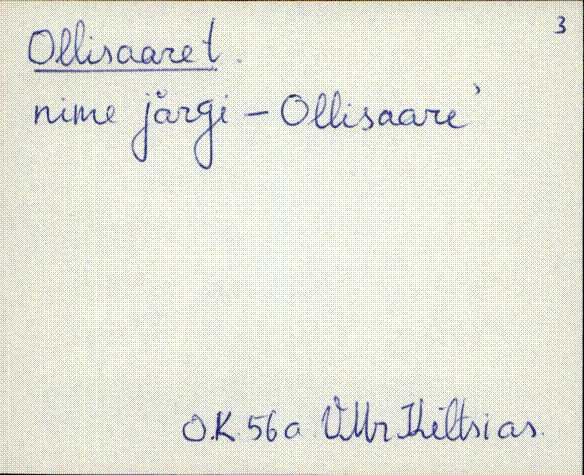 3
Ollisaaret.
nime järgi – Ollisaare'
O.K. 56 a. VMr Kiltsi as.